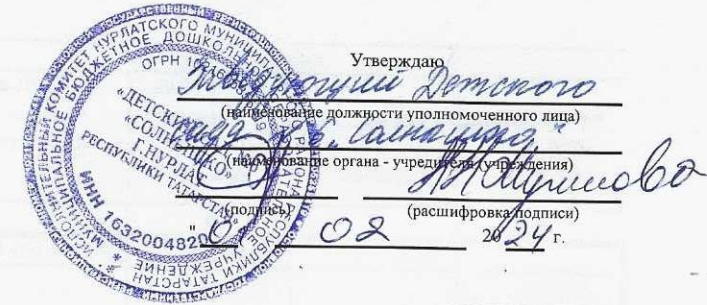 Утверждаю
Заведующий Детского
(наименование должности уполномоченного лица)
сада "Солнышко"
(наименование органа - учредителя (учреждения)
(подпись) (расшифровка подписи)
" 0 02 2024 г.
ИСПОЛНИТЕЛЬНЫЙ КОМИТЕТ НУРЛАТСКОГО МУНИЦИПАЛЬНОГО РАЙОНА РЕСПУБЛИКИ ТАТАРСТАН
МУНИЦИПАЛЬНОЕ БЮДЖЕТНОЕ ДОШКОЛЬНОЕ
УЧРЕЖДЕНИЕ
ОГРН
"ДЕТСКИЙ
«СОЛНЫШКО»
Г.НУРЛАТ
РЕСПУБЛИКИ ТАТАРСТАН
ИНН 163200482